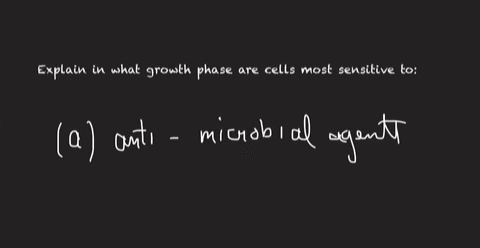 Explain in what growth phase are cells most sensitive to:
(a) anti - microbial agents